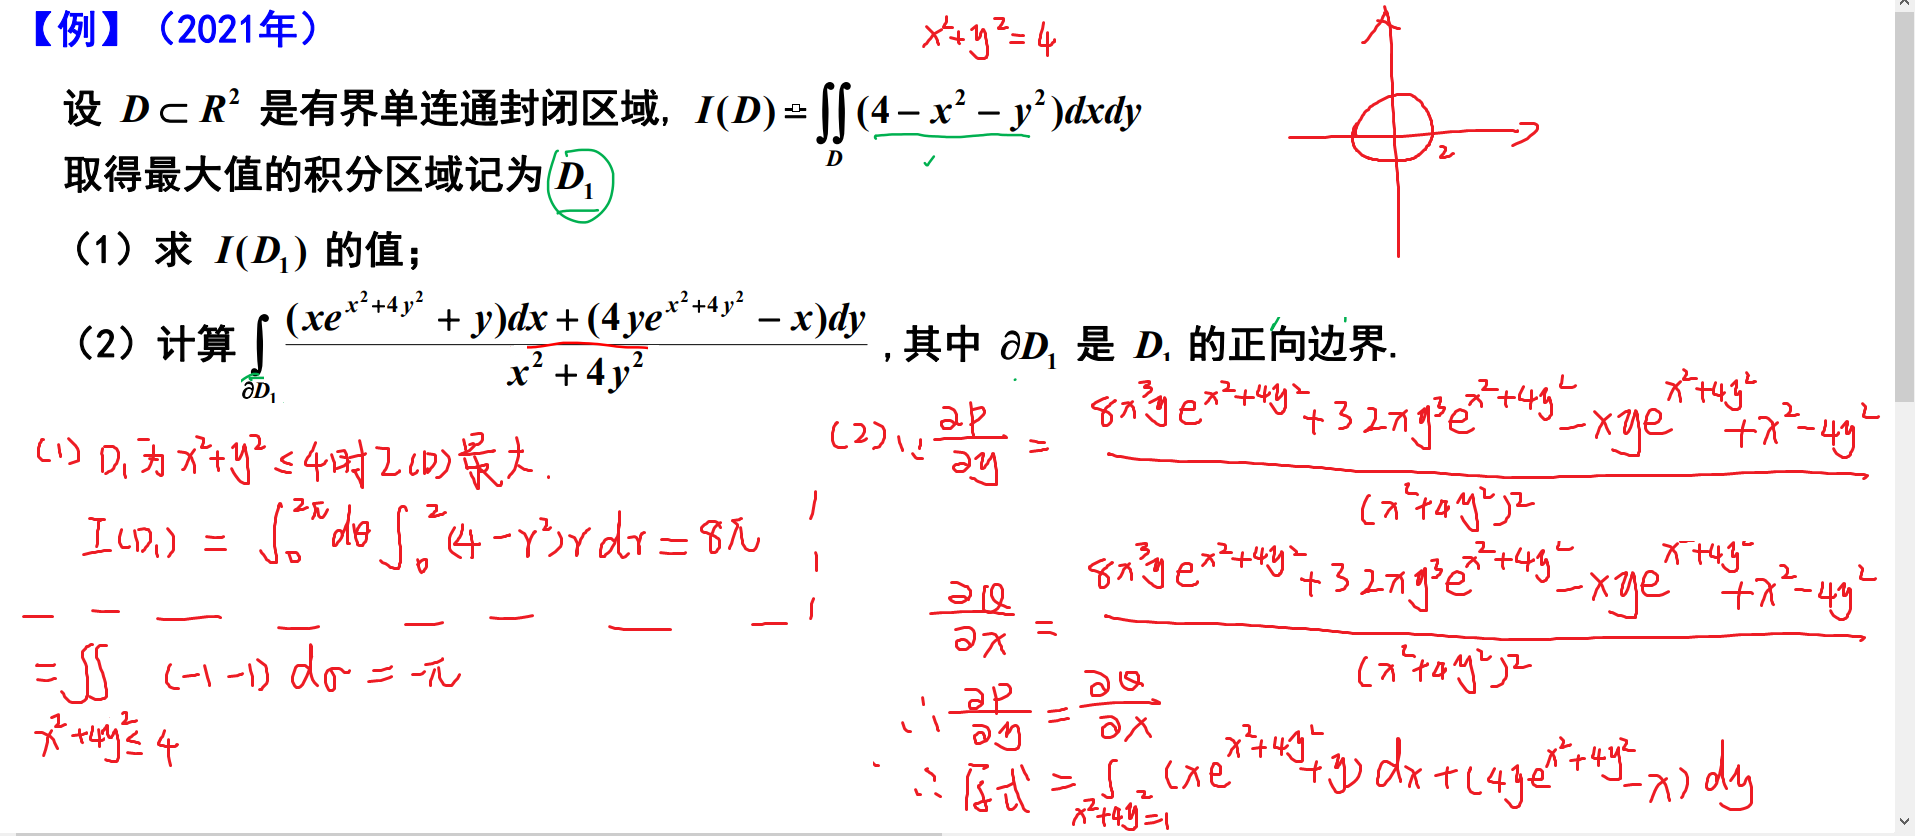 【例】（2021年）
x²+y²=4
设 D ⊂ R² 是有界单连通封闭区域, I(D) = ∬_D (4 − x² − y²)dxdy
取得最大值的积分区域记为 D₁
2
（1）求 I(D₁) 的值;
（2）计算 ∫_{∂D₁} [(xe^{x²+4y²} + y)dx + (4ye^{x²+4y²} − x)dy] / (x² + 4y²) ,其中 ∂D₁ 是 D₁ 的正向边界.
(1) D₁为 x²+y² ≤ 4时 I(D)最大.
I(D₁) = ∫₀^{2π} dθ ∫₀² (4−r²)r dr = 8π
(2) ∵ ∂P/∂y = [8x³ye^{x²+4y²} + 32xy³e^{x²+4y²} − xye^{x²+4y²} + x² − 4y²] / (x²+4y²)²
∂Q/∂x = [8x³ye^{x²+4y²} + 32xy³e^{x²+4y²} − xye^{x+4y²} + x² − 4y²] / (x²+4y²)²
∴ ∂P/∂y = ∂Q/∂x
∴ 原式 = ∫_{x²+4y²=1} (xe^{x²+4y²} + y) dx + (4ye^{x²+4y²} − x) dy
= ∬_{x²+4y²≤4} (−1−1) dσ = −π